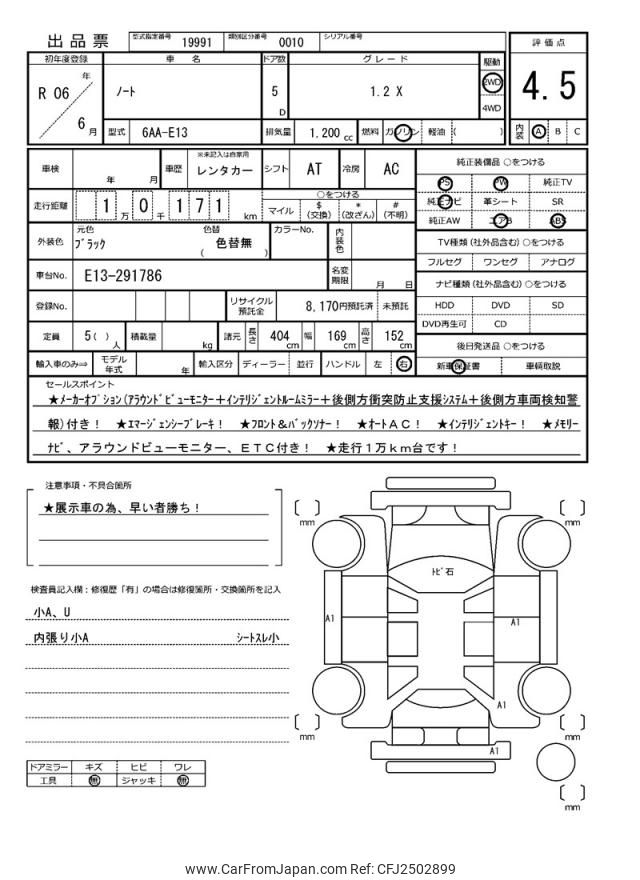 出品票
型式指定番号 19991 類別区分番号 0010 シリアル番号
評価点
初年度登録 車名 ドア数 グレード 駆動
R 06 年 ノート 5 D 1.2 X 2WD 4WD
4.5
6 月 型式 6AA-E13 排気量 1,200 cc 燃料 ガソリン 軽油 ( )
内装 A B C
車検 年 月 車歴 ※未記入は自家用 レンタカー シフト AT 冷房 AC
純正装備品 ○をつける
PS PW 純正TV
純正ナビ 革シート SR
純正AW エアB ABS
走行距離 1 万 0 千 1 7 1 km
○をつける
マイル $ (交換) * (改ざん) # (不明)
外装色 元色 ブラック 色替 ( 色替無 ) カラーNo. 内装色
TV種類 (社外品含む) ○をつける
フルセグ ワンセグ アナログ
車台No. E13-291786 名変期限 月 日
ナビ種類 (社外品含む) ○をつける
HDD DVD SD
DVD再生可 CD
登録No. リサイクル預託金 8,170円預託済 未預託
定員 5( ) 人 積載量 kg 諸元 長さ 404 cm 幅 169 cm 高さ 152 cm
後日発送品 ○をつける
新車保証書 車輌取説
輸入車のみ⇒ モデル年式 年 輸入区分 ディーラー 並行 ハンドル 左 右
セールスポイント
★メーカーオプション(アラウンドビューモニター+インテリジェントルームミラー+後側方衝突防止支援システム+後側方車両検知警
報)付き! ★エマージェンシーブレーキ! ★フロント&バックソナー! ★オートAC! ★インテリジェントキー! ★メモリー
ナビ、アラウンドビューモニター、ETC付き! ★走行1万km台です!
注意事項・不具合箇所
★展示車の為、早い者勝ち!
検査員記入欄:修復歴「有」の場合は修復箇所・交換箇所を記入
小A、U
内張り小A シートスレ小
ドアミラー キズ ヒビ ワレ
工具 無 ジャッキ 無
mm
mm
トビ石
A1
A1
A1
mm
mm
A1
mm
www.CarFromJapan.com Ref: CFJ2502899